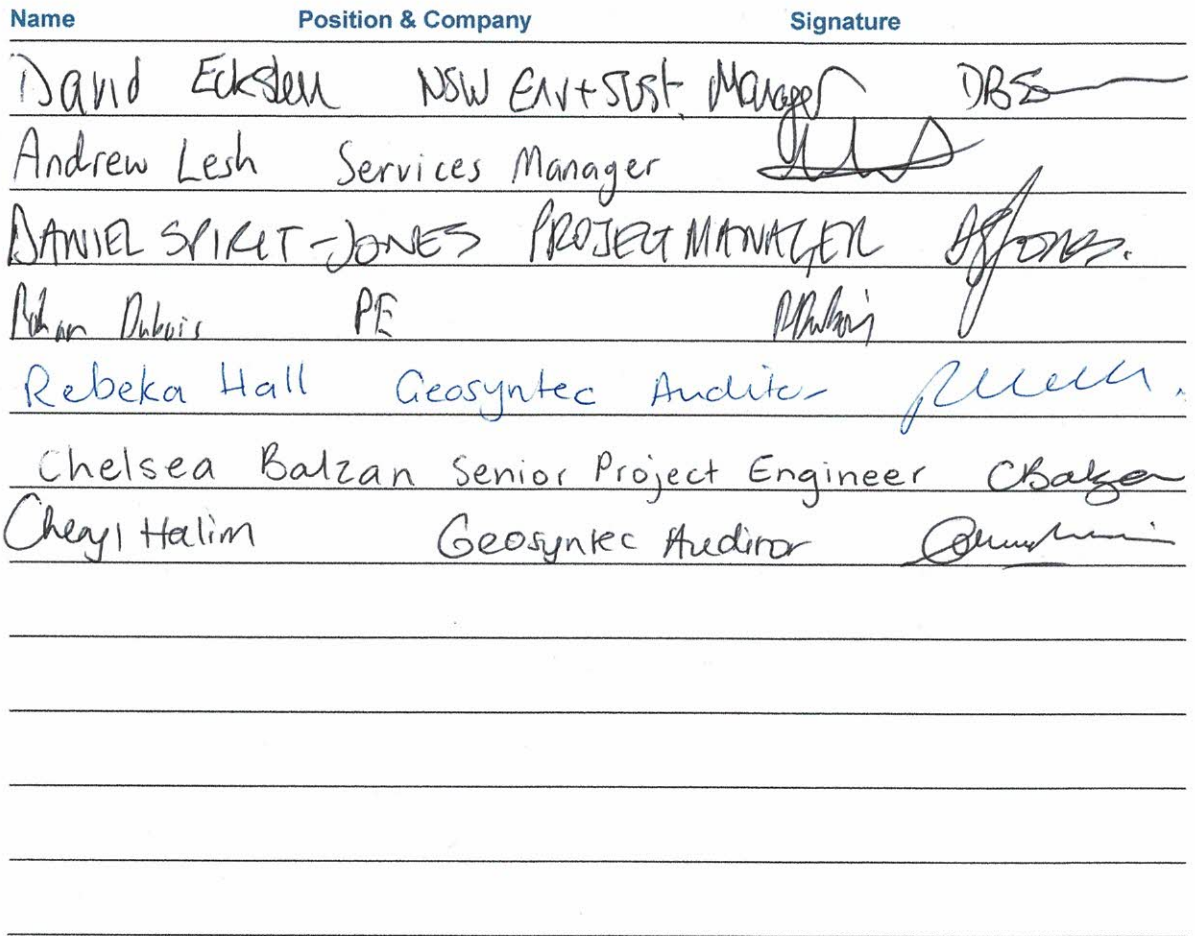 Name Position & Company Signature
David Eckstein NSW Env + Sust. Manager DBE
Andrew Lesh Services Manager
DANIEL SPIRIT-JONES PROJECT MANAGER DSJones.
Rohan Dubois PE RDubois
Rebeka Hall Geosyntec Auditor
Chelsea Balzan Senior Project Engineer CBalzan
Cheryl Halim Geosyntec Auditor